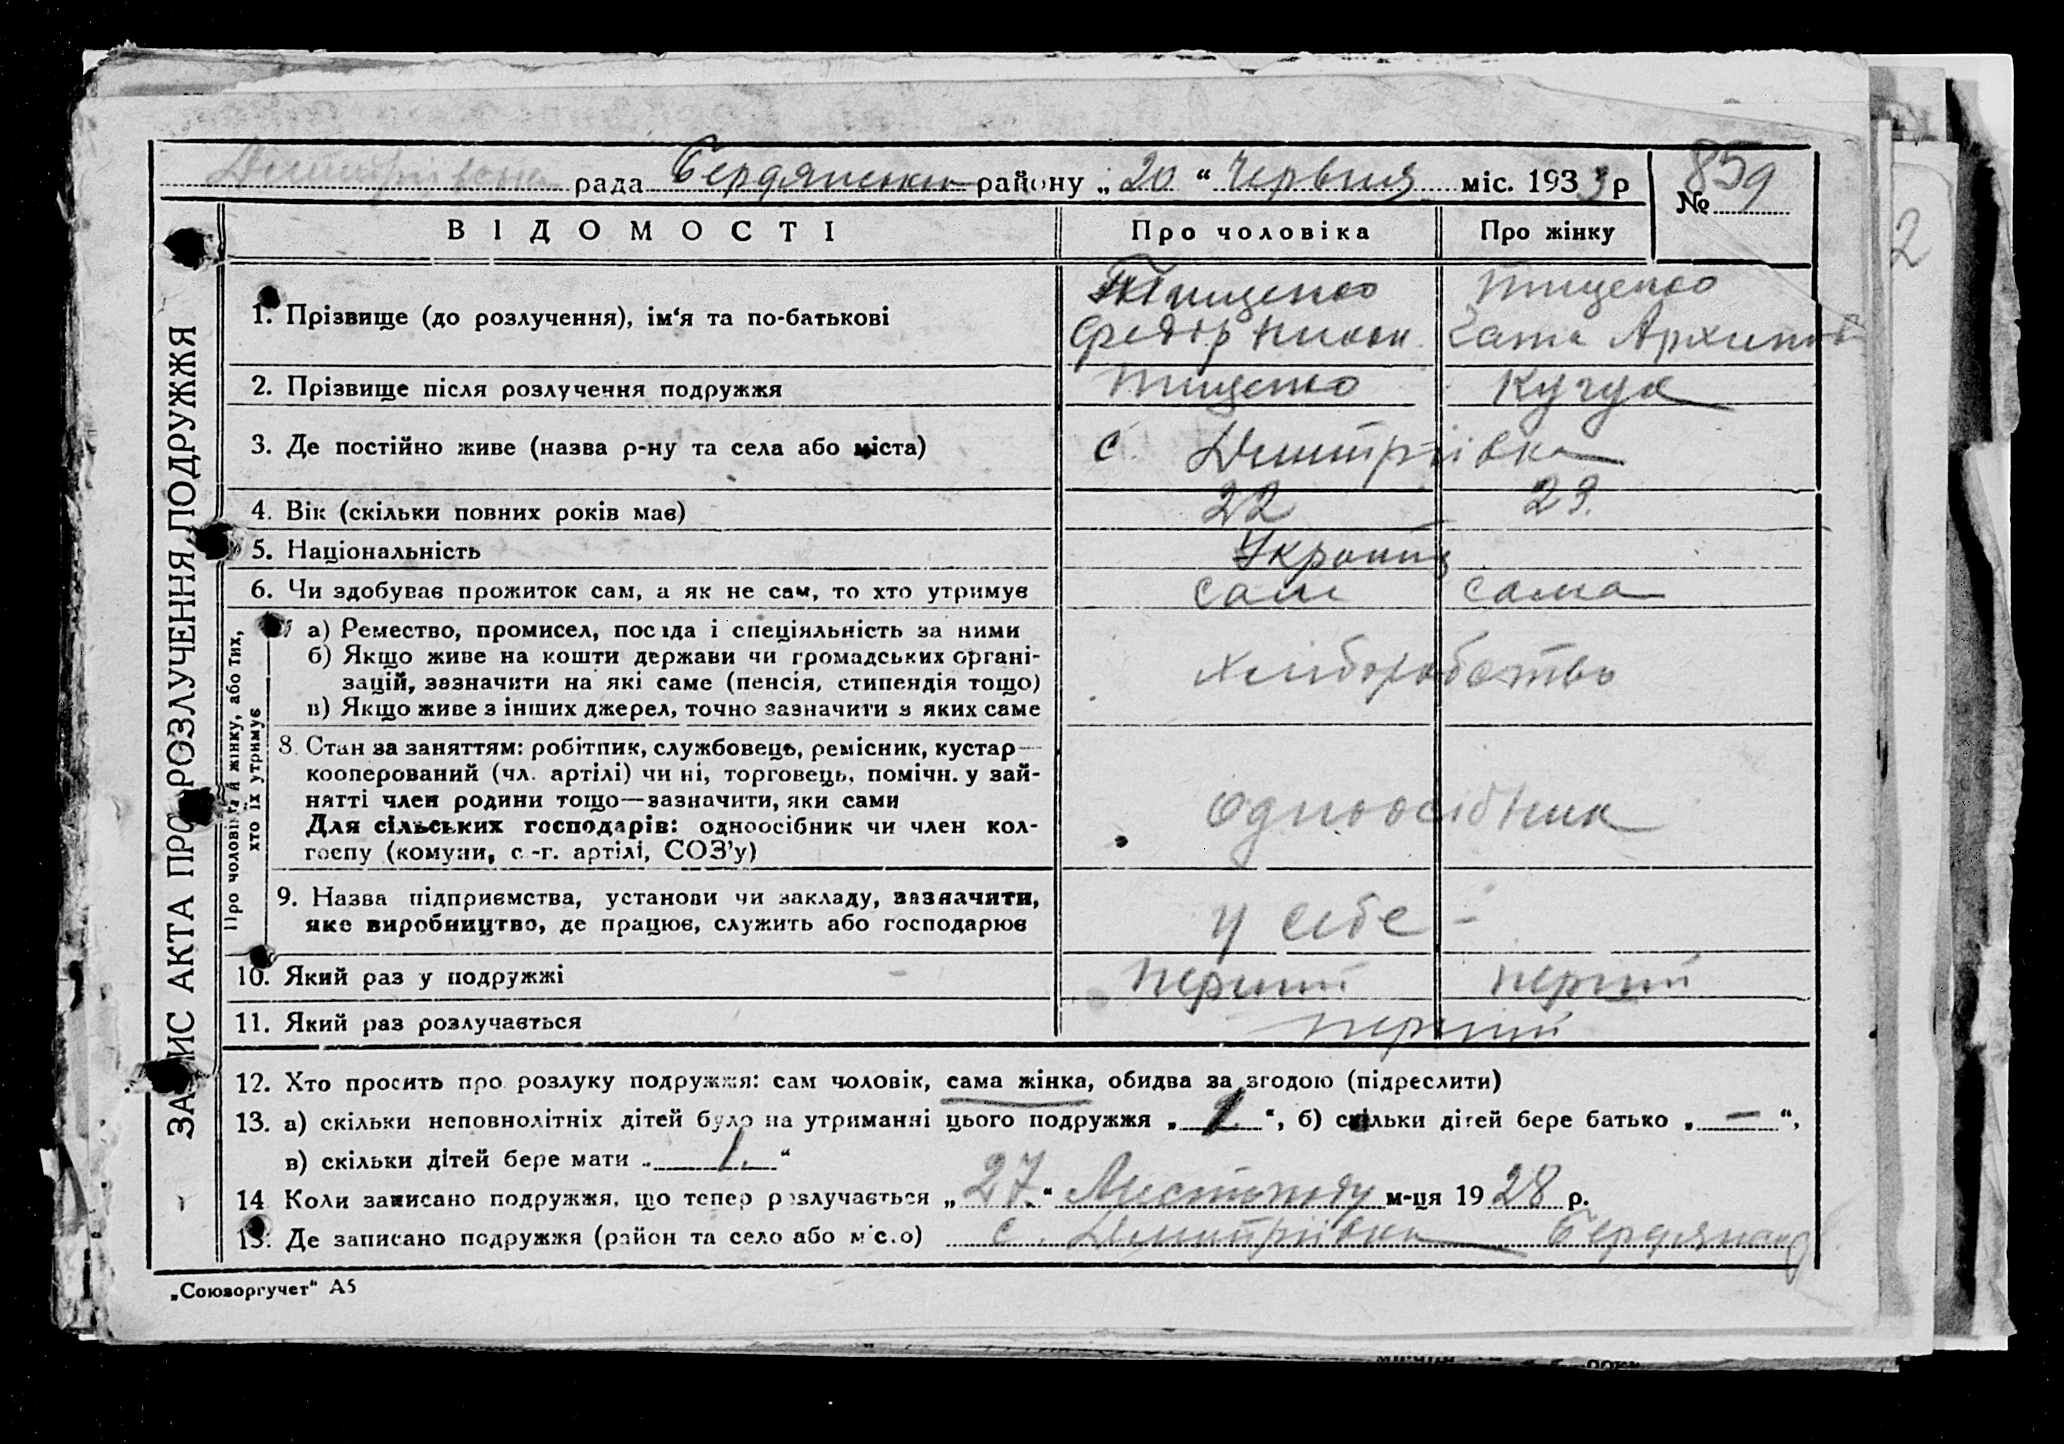 Димитрівська рада Бердянського району „20“ Червня міс. 1933 р
№ 859
ВІДОМОСТІ Про чоловіка Про жінку
1. Прізвище (до розлучення), ім‘я та по-батькові Тищенко Федір Никон. Тищенко Архипов
2. Прізвище після розлучення подружжя Тищенко Кучук
3. Де постійно живе (назва р-ну та села або міста) с. Димитріівка
4. Вік (скільки повних років має) 22 23.
5. Національність Україн
6. Чи здобуває прожиток сам, а як не сам, то хто утримує сам сама
7 а) Ремество, промисел, посада і спеціяльність за ними
б) Якщо живе на кошти держави чи громадських органі-
зацій, зазначити на які саме (пенсія, стипендія тощо) хліборобство
в) Якщо живе з інших джерел, точно зазначити з яких саме
8. Стан за заняттям: робітник, службовець, ремісник, кустар—
кооперований (чл. артілі) чи ні, торговець, помічн. у зай-
нятті член родини тощо—зазначити, яки сами
Для сільських господарів: одноосібник чи член кол- одноосібник
госпу (комуни, с.-г. артілі, СОЗ’у)
9. Назва підприємства, установи чи закладу, зазначити,
яке виробництво, де працює, служить або господарює у себе -
10. Який раз у подружжі перший перший
11. Який раз розлучається перший
12. Хто просить про розлуку подружжя: сам чоловік, сама жінка, обидва за згодою (підреслити)
13. а) скільки неповнолітніх дітей було на утриманні цього подружжя „1.“, б) скільки дітей бере батько „—“,
в) скільки дітей бере мати „1.“
14 Коли записано подружжя, що тепер розлучається „27.“ Листопаду м-ця 1928 р.
15. Де записано подружжя (район та село або місто) с. Димитріівка Бердянськ
„Союзоргучет“ А5
ЗАПИС АКТА ПРО РОЗЛУЧЕННЯ ПОДРУЖЖЯ
Про чоловіка й жінку, або тих,
хто їх утримує
2